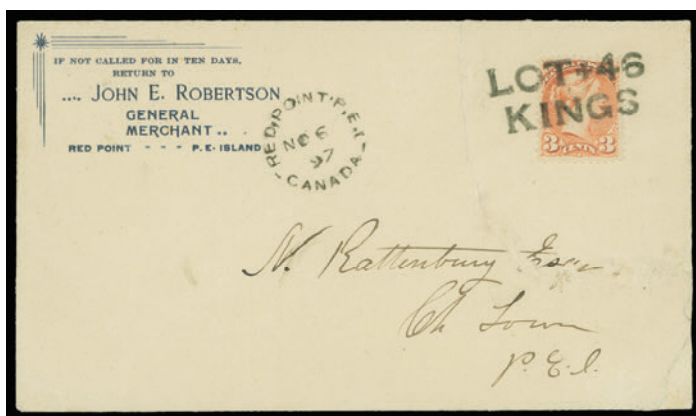 IF NOT CALLED FOR IN TEN DAYS,
RETURN TO
.... JOHN E. ROBERTSON
GENERAL
MERCHANT ..
RED POINT - - - P.E. ISLAND
RED POINT · P.E.I.
NO 6
97
CANADA
LOT · 46
KINGS
3 CENTS 3
N. Rattenbury Esq
Ch Town
P.E.I.